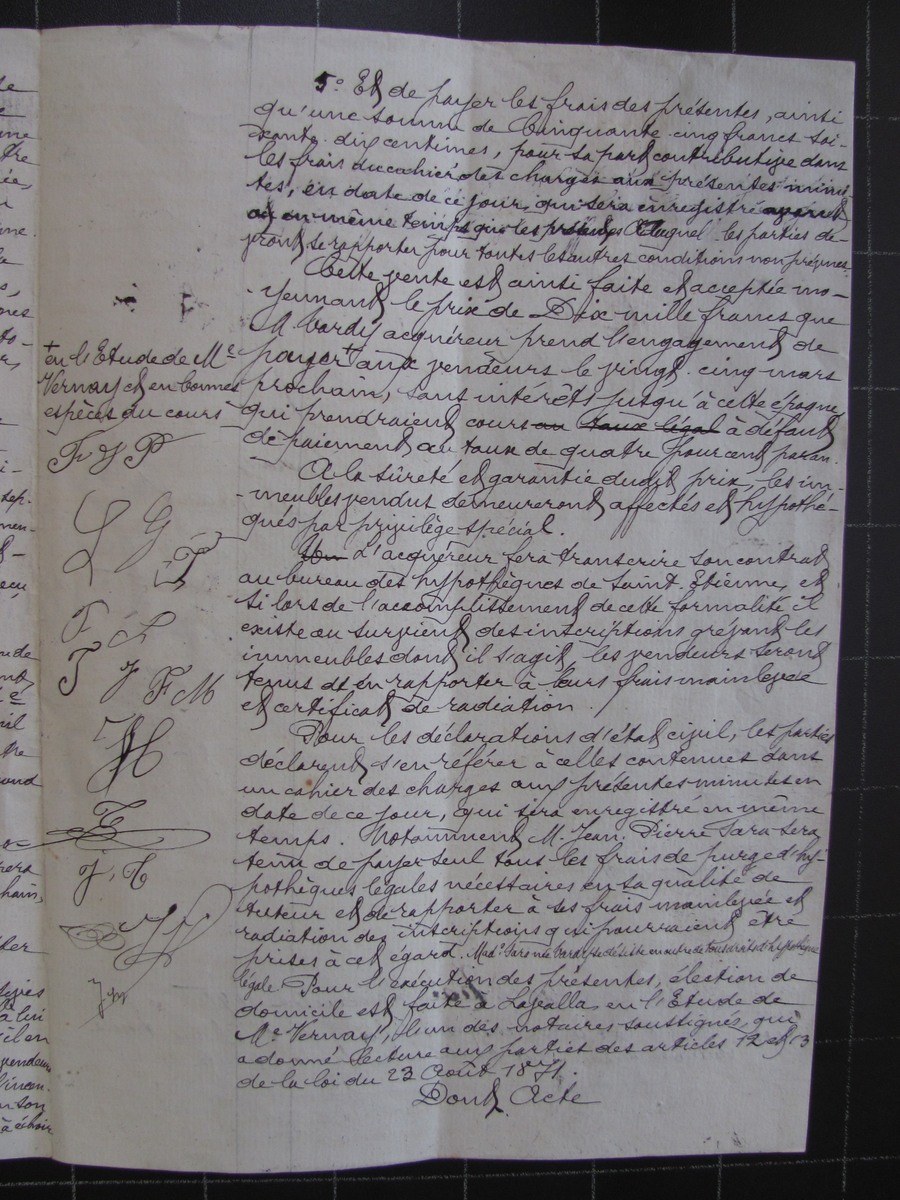 5° Et de payer les frais des présentes, ainsi
qu'une somme de Cinquante-cinq francs soi-
xante-dix centimes, pour sa part contributive dans
les frais du cahier des charges aux présentes minu
tes, en date de ce jour, qui sera enregistré avant
ou en même temps que les présentes Auquel les parties de-
vront se rapporter pour toutes les autres conditions non prévues.
Cette vente est ainsi faite et acceptée mo-
yennant le prix de Dix mille francs que
M. Vardy acquéreur prend l'engagement de
payer + aux vendeurs le vingt-cinq mars
prochain, sans intérêts jusqu'à cette époque,
qui prendraient cours au taux légal à défaut
de paiement au taux de quatre pour cent par an.
A la sûreté et garantie dudit prix, les im-
meubles vendus demeureront affectés et hypothé-
qués par privilège spécial.
L'acquéreur fera transcrire son contrat
au bureau des hypothèques de Saint-Etienne, et
si lors de l'accomplissement de cette formalité il
existe ou survient des inscriptions grévant les
immeubles dont il s'agit les vendeurs seront
tenus d'en rapporter à leurs frais mainlevée
et certificat de radiation.
Pour les déclarations d'état civil, les parties
déclarent s'en référer à celles contenues dans
un cahier des charges aux présentes minutes en
date de ce jour, qui sera enregistré en même
temps. Notamment M. Jean-Pierre Sara sera
tenu de payer seul tous les frais de purge d'hy-
pothèques légales nécessaires en sa qualité de
tuteur et de rapporter à ses frais mainlevée et
radiation des inscriptions qui pourraient être
prises à cet égard. Mad. Sara née Vardy se désiste en outre de tous droits d'hypothèque
légale Pour l'exécution des présentes, élection de
domicile est faite à Lavalla, en l'Etude de
Me Vernay, l'un des notaires soussignés, qui
a donné lecture aux parties des articles 12 et 13
de la loi du 23 Août 1871.
Dont Acte
+ en l'Etude de Me
Vernay et en bonnes
espèces du cours
F J P
L G
T
F L
T J F M
H
T
j. T